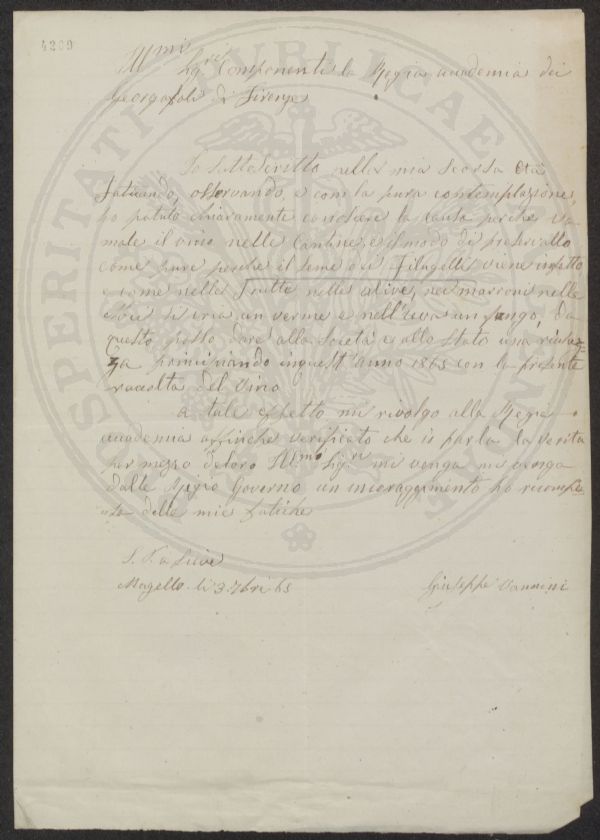 4209
Ill.mi
Sig.ri Componenti la Regia accademia dei
Georgofoli di Firenze
Io sottoscritto nelle mia scorsa Età
faticando, osservando, e com la pura contemplazione,
ho potuto chiaramente conoscere la causa perche va
male il vino nelle Cantine, e il modo di preservallo
come pure perche il seme dei Filugelli viene infetto
e come nelle Frutte nelle olive, nei marroni nelle
si cria un verme e nell'uva un fungo, da
questo posso dare alla Società e allo Stato una richez=
za principiando inquest'anno 1865 con la presente
raccolta del Vino
a tale effetto mi rivolgo alla Regia
accademia affinche verificato che io parla la verità
per mezzo deloro Ill.mo Sig.ri mi venga mi venga
dalle Regio Governo un incoraggimento ho ricompe
nsa delle mie fatiche
S. P. a Sieve
Mugello li 3. 7bri 65
Giuseppe Vannini
PROSPERITATI PVBLICAE